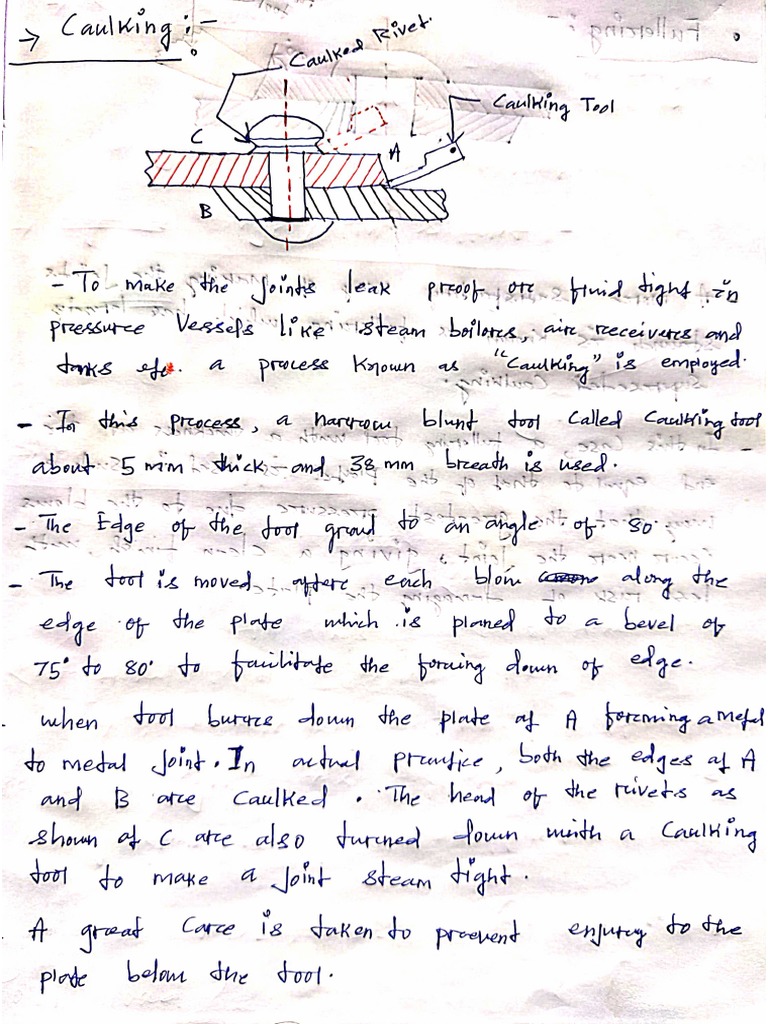 → Caulking :-
Caulked Rivet.
Caulking Tool
C
A
B
- To make the joints leak proof or fluid tight in
pressure Vessels like steam boilers, air receivers and
tanks etc. a process known as "Caulking" is employed.
- In this process, a narrow blunt tool called Caulking tool
about 5 mm thick and 38 mm breath is used.
- The Edge of the tool groud to an angle of 80°
- The tool is moved after each blow along the
edge of the plate which is planed to a bevel of
75° to 80° to facilitate the forcing down of edge.
when tool burrs down the plate at A forming a metal
to metal joint. In actual practice, both the edges at A
and B are caulked. The head of the rivets as
shown at C are also turned down with a caulking
tool to make a joint steam tight.
A great Care is taken to prevent enjury to the
plate below the tool.